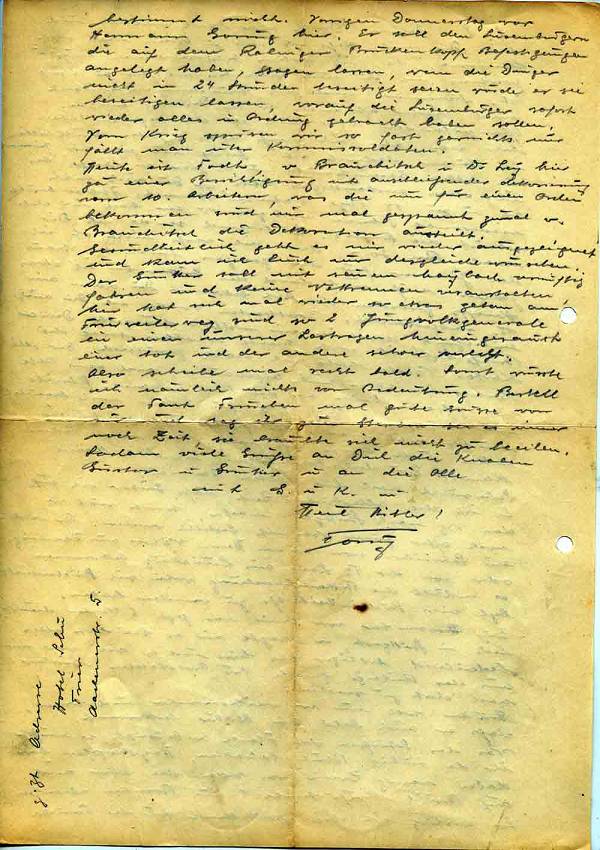 bestimmt nicht. Vorigen Donnerstag war
Hermann Göring hier. Er soll den Luxemburgern
die auf dem Brückenkopf Befestigungen
angelegt haben, sagen lassen, wenn die Dinger
nicht in 24 Stunden beseitigt seien würde er sie
beseitigen lassen, worauf die Luxemburger sofort
wieder alles in Ordnung gebracht haben sollen.
Vom Krieg spüren wir so fast garnichts nur
fällt man über Kommissoldaten.
Heute ist Todt, v. Brauchitsch u Dr Ley hier
zu einer Besichtigung mit anschließender Dekorierung
von 10. Arbeitern, was die nun für einen Orden
bekommen sind wir mal gespannt zumal v.
Brauchitsch die Dekoration austeilt.
Gesundheitlich geht es mir wieder ausgezeichnet
und kann ich Euch nur desgleichen wünschen.
Der soll mit seinem Maybach vernünftig
fahren und keine veranstalten,
hier hat sich mal wieder so etwas getan am
weg sind so 2 Jungvolkgenerale
in einen unserer hineingesaust
einer tot und der andere schwer verletzt.
Also schreibe mal recht bald. Sonst wüsste
ich nämlich nichts von Bedeutung. Bestell
der Tante mal gute Grüsse von
mir und sag ihr zum sei es immer
noch Zeit, sie brauchte sich nicht zu beeilen.
Sodann viele Grüße an Dich die Knaben
u u an die Olle
mit G. u K. u
Heil Hitler!
z. Zt Adresse
Hotel
Trier
5.